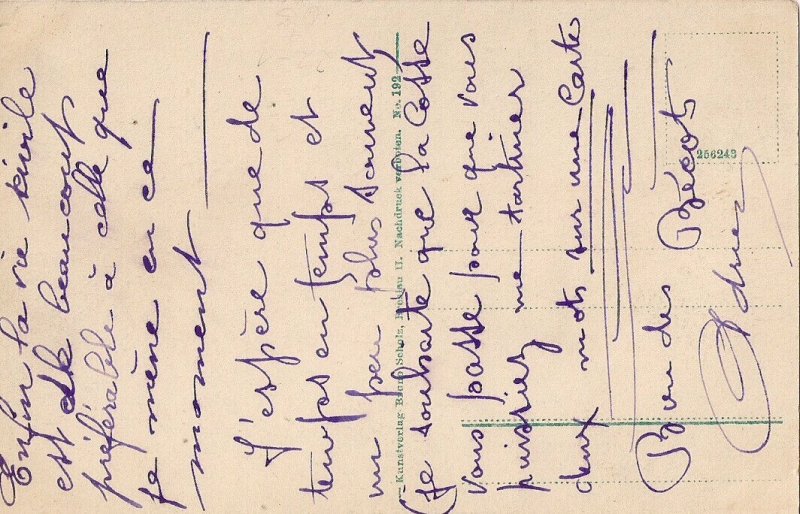 Enfin la vie civile
est de beaucoup
préférable à celle que
je mène en ce
moment
J'espère que de
temps en temps et
un peu plus souvent
(Je souhaite que la Cosse
vous passe pour que vous
puissiez me tartiner
deux mots sur une Carte
Bien des Bécots
Kunstverlag Bruno Scholz, Breslau II. Nachdruck verboten. No. 192
256243